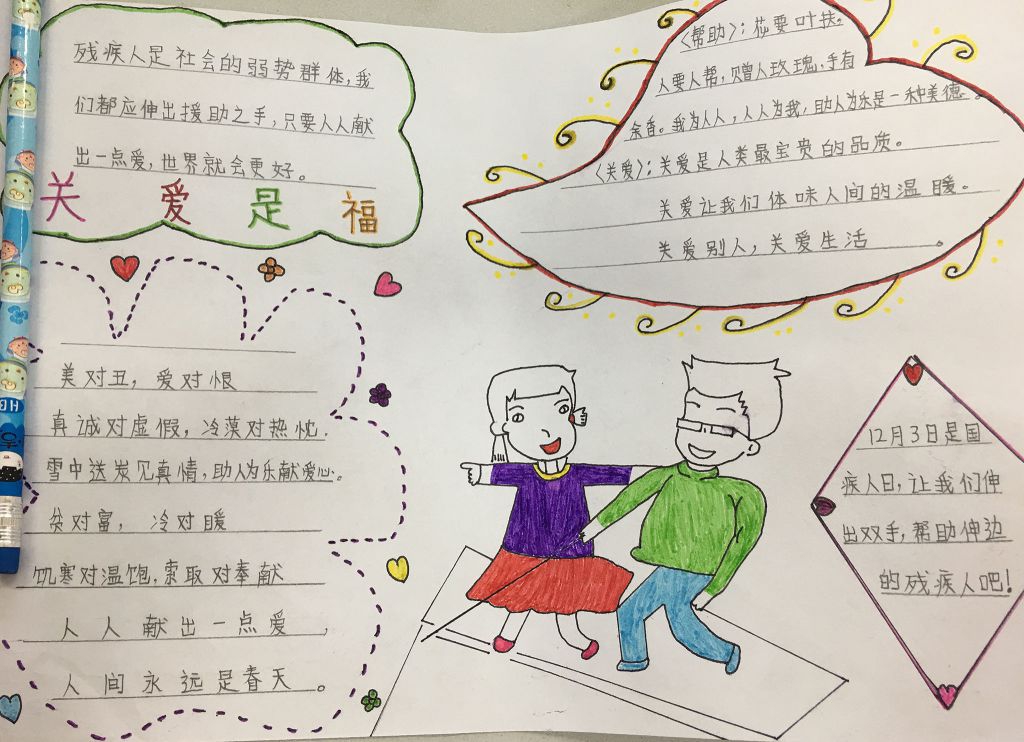 残疾人是社会的弱势群体,我
们都应伸出援助之手,只要人人献
出一点爱,世界就会更好。
关爱是福
《帮助》:花要叶扶。
人要人帮,赠人玫瑰,手有
余香。我为人人,人人为我,助人为乐是一种美德。
《关爱》:关爱是人类最宝贵的品质。
关爱让我们体味人间的温暖。
关爱别人,关爱生活。
美对丑,爱对恨
真诚对虚假,冷漠对热忱.
雪中送炭见真情,助人为乐献爱心.
贫对富,冷对暖
饥寒对温饱,索取对奉献
人人献出一点爱,
人间永远是春天。
12月3日是国
疾人日,让我们伸
出双手,帮助伸边
的残疾人吧!
HB